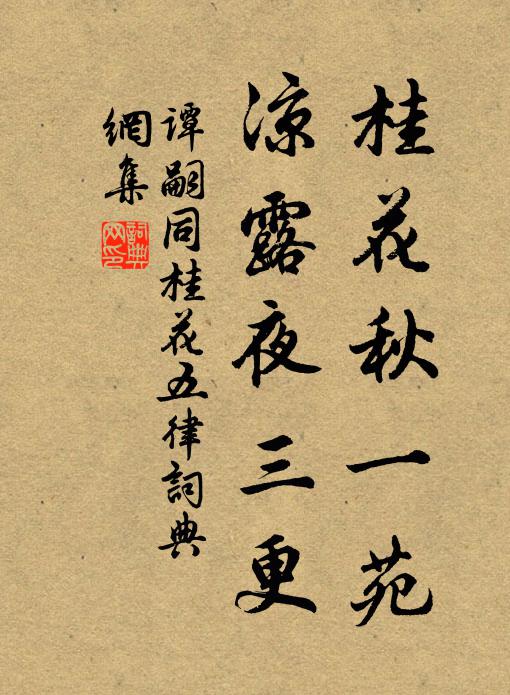 桂花秋一苑
凉露夜三更
谭嗣同桂花五律詞典
網集
詞典網印